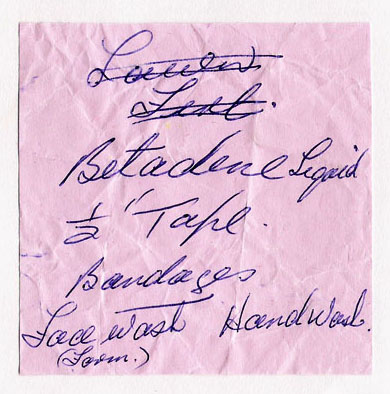 Betadene Liquid
1/2" Tape.
Bandages
Face Wash Hand Wash.
(Foam.)